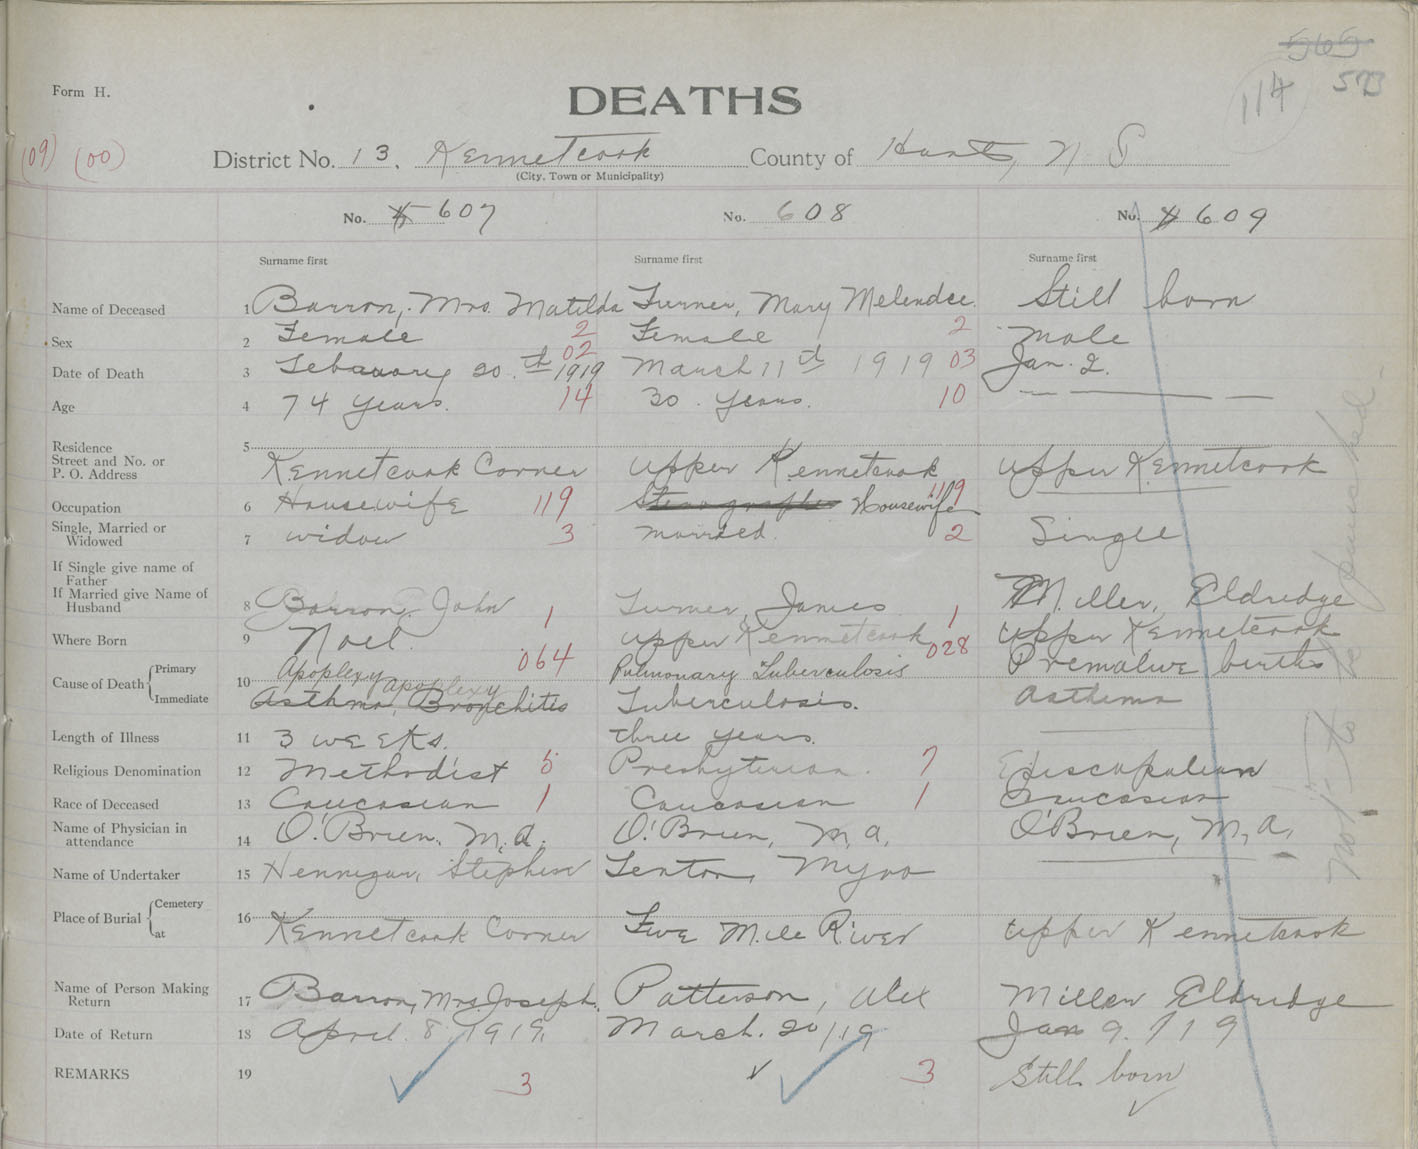 565
573
114
Form H.
DEATHS
(09) (00)
District No. 13. Kennetcook County of Hants, N S
(City, Town or Municipality)
No. 607 No. 608 No. 609
Surname first Surname first Surname first
Name of Deceased 1 Barron, Mrs. Matilda Turner, Mary Melendce. Still born
Sex 2 Female 2 Female 2 male
Date of Death 3 Febuuary 20.th 1919 02 March 11th 1919 03 Jan. 2.
Age 4 74 years. 14 30. years. 10
Residence 5
Street and No. or
P. O. Address Kennetcook Corner Upper Kennetcook Upper Kennetcook
Occupation 6 Housewife 119 Stenographer Housewife 119
Single, Married or
Widowed 7 widow 3 married. 2 Single
If Single give name of
Father
If Married give Name of
Husband 8 Barron, John 1 Turner, James 1 Miller, Eldredge
Where Born 9 Noel. Upper Kennetcook Upper Kennetcook
064 028
Cause of Death Primary 10 Apoplexy Pulmonary Tuberculosis Premature birth
Immediate Asthma, Bronchitis apoplexy Tuberculosis. asthema
Length of Illness 11 3 weeks. three years.
Religious Denomination 12 Methodist 5 Presbyterian. 7 Episcopalian
Race of Deceased 13 Caucasian 1 Caucasian 1 Caucasian
Name of Physician in
attendance 14 O'Brien, M. a. O'Brien, M, a, O'Brien, M, a,
Name of Undertaker 15 Hennigar, Stephen
Place of Burial Cemetery 16
at Kennetcook Corner Five Mile River Upper Kennetcook
Name of Person Making
Return 17 Barron, Mrs. Joseph. Patterson, Alex Miller Eldredge
Date of Return 18 April. 8, 1919, March. 20/19 Jan 9. 1919
REMARKS 19 3 3 Still born
Not to be punched